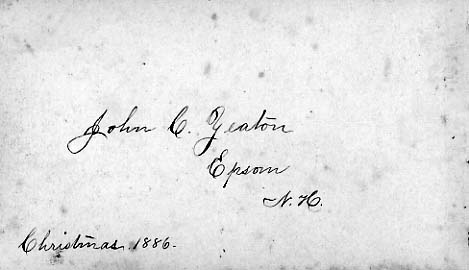 John C. Yeaton
Epsom
N.H.
Christmas 1886.